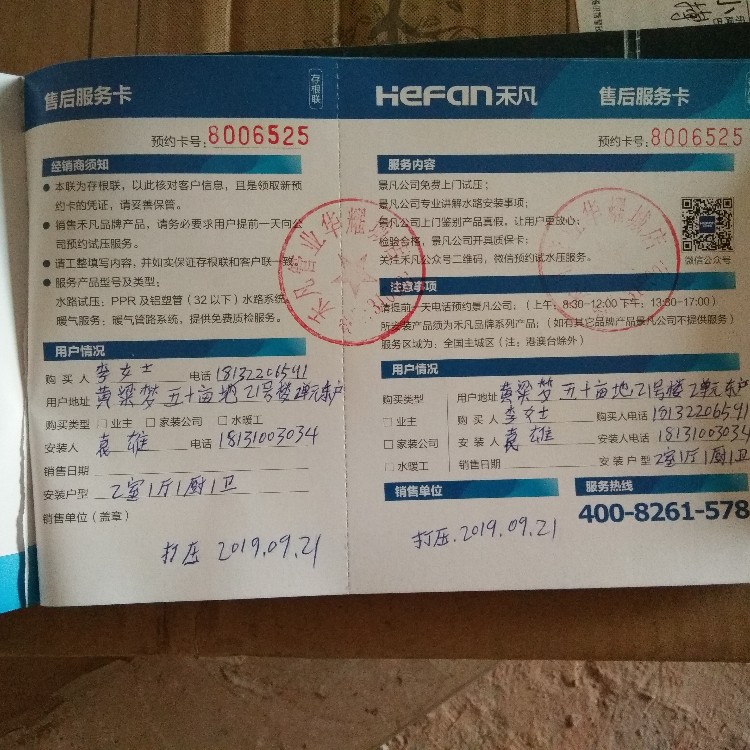 售后服务卡
存根联
预约卡号:8006525
经销商须知
● 本联为存根联，以此核对客户信息，且是领取新预
约卡的凭证，请妥善保管。
● 销售禾凡品牌产品，请务必要求用户提前一天向公
司预约试压服务。
● 请工整填写内容，并如实保证存根联和客户联一致。
● 服务产品型号及类型：
水路试压：PPR 及铝塑管（32以下）水路系统。
暖气服务：暖气管路系统，提供免费质检服务。
用户情况
购买人 李女士 电话 18132206541
用户地址 黄粱梦五十亩地21号楼2单元东户
购买类型 □ 业主 □ 家装公司 □ 水暖工
安装人 袁雄 电话 18131003034
销售日期
安装户型 2室1厅1厨1卫
销售单位（盖章）
打压 2019.09.21
HEFAN禾凡 售后服务卡
预约卡号:8006525
服务内容
景凡公司免费上门试压；
景凡公司专业讲解水路安装事项；
景凡公司上门鉴别产品真假，让用户更放心；
检验合格，景凡公司开具质保卡；
关注禾凡公众号二维码，微信预约试水压服务。
微信公众号
注意事项
请提前一天电话预约景凡公司；（上午：8:30-12:00 下午：13:30-17:00）
所安装产品须为禾凡品牌系列产品；（如有其它品牌产品景凡公司不提供服务）
服务区域为：全国主城区（注：港澳台除外）
用户情况
购买类型 用户地址 黄粱梦五十亩地21号楼2单元东户
□ 业主 购买人 李女士 购买人电话 18132206541
□ 家装公司 安装人 袁雄 安装人电话 18131003034
□ 水暖工 销售日期 安装户型 2室1厅1厨1卫
销售单位 服务热线
400-8261-578
打压.2019.09.21
禾凡管业华耀城店